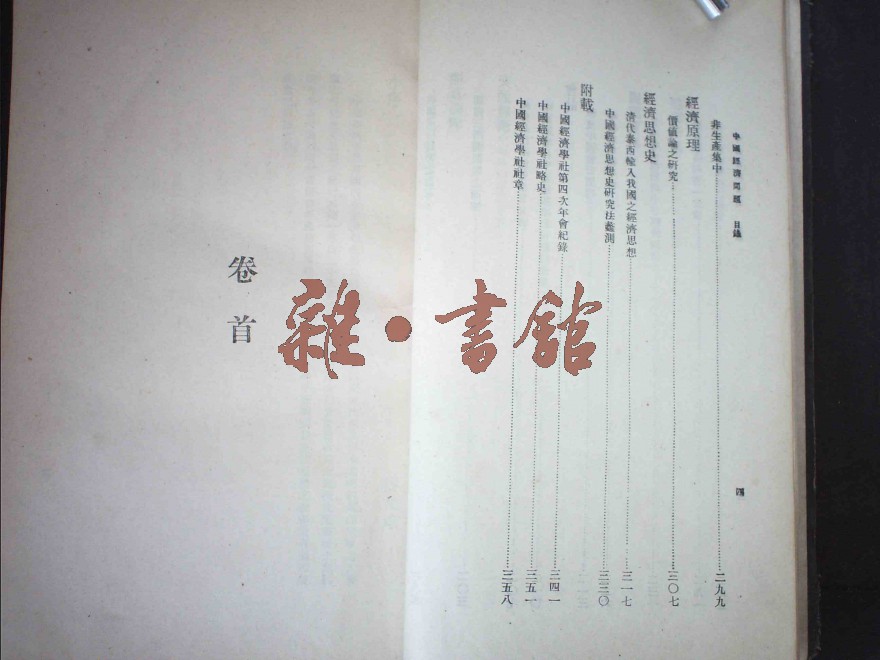 中國經濟問題 目錄
四
非生產集中……二九九
經濟原理
價值論之研究……三〇七
經濟思想史
清代泰西輸入我國之經濟思想……三一七
中國經濟思想史研究法蠡測……三三〇
附載
中國經濟學社第四次年會紀錄……三四一
中國經濟學社略史……三五一
中國經濟學社社章……三五八
卷首
雜·書館